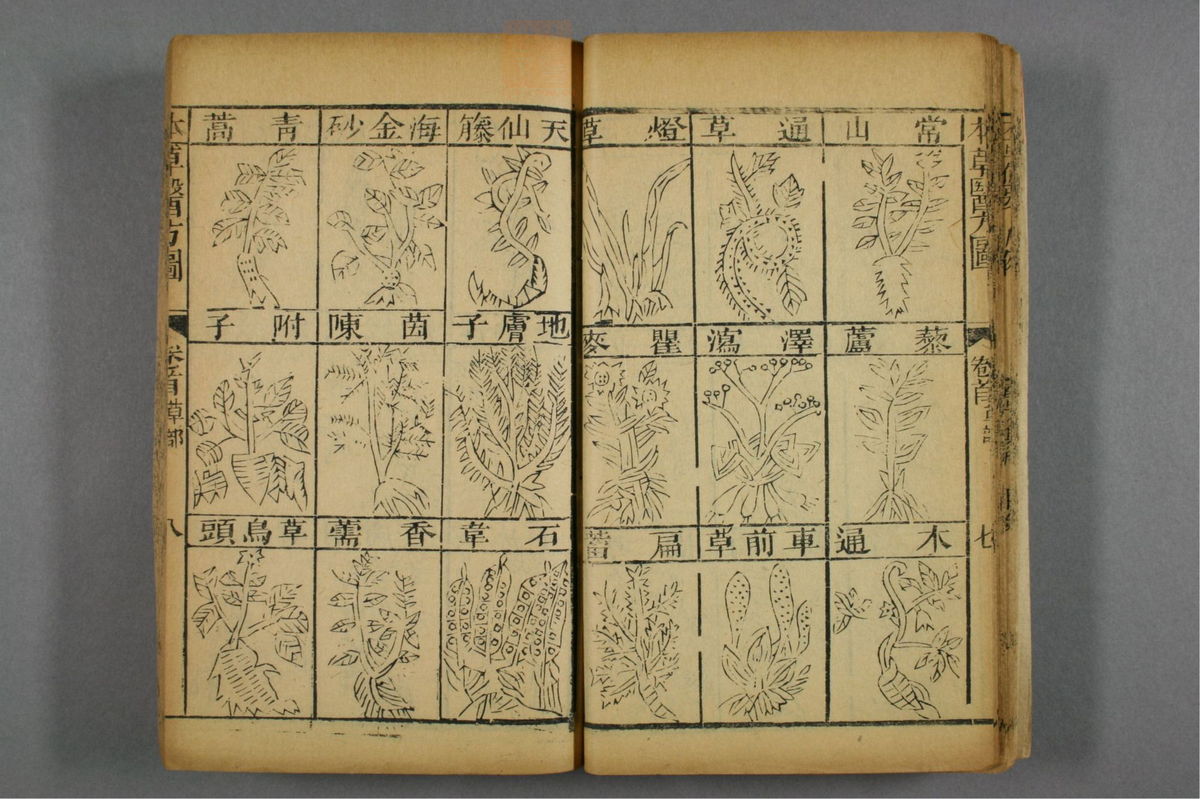 本草醫方圖
卷首草部
七
常山
通草
燈草
藜蘆
澤瀉
瞿麥
木通
車前草
扁蓄
天仙籐
海金砂
青蒿
地膚子
茵陳
附子
石韋
香薷
草烏頭
本草醫方圖
卷首草部
八